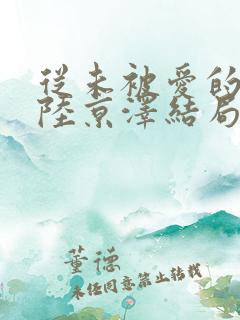 從未被愛的
陸京澤結局
董德
未经同意禁止转载